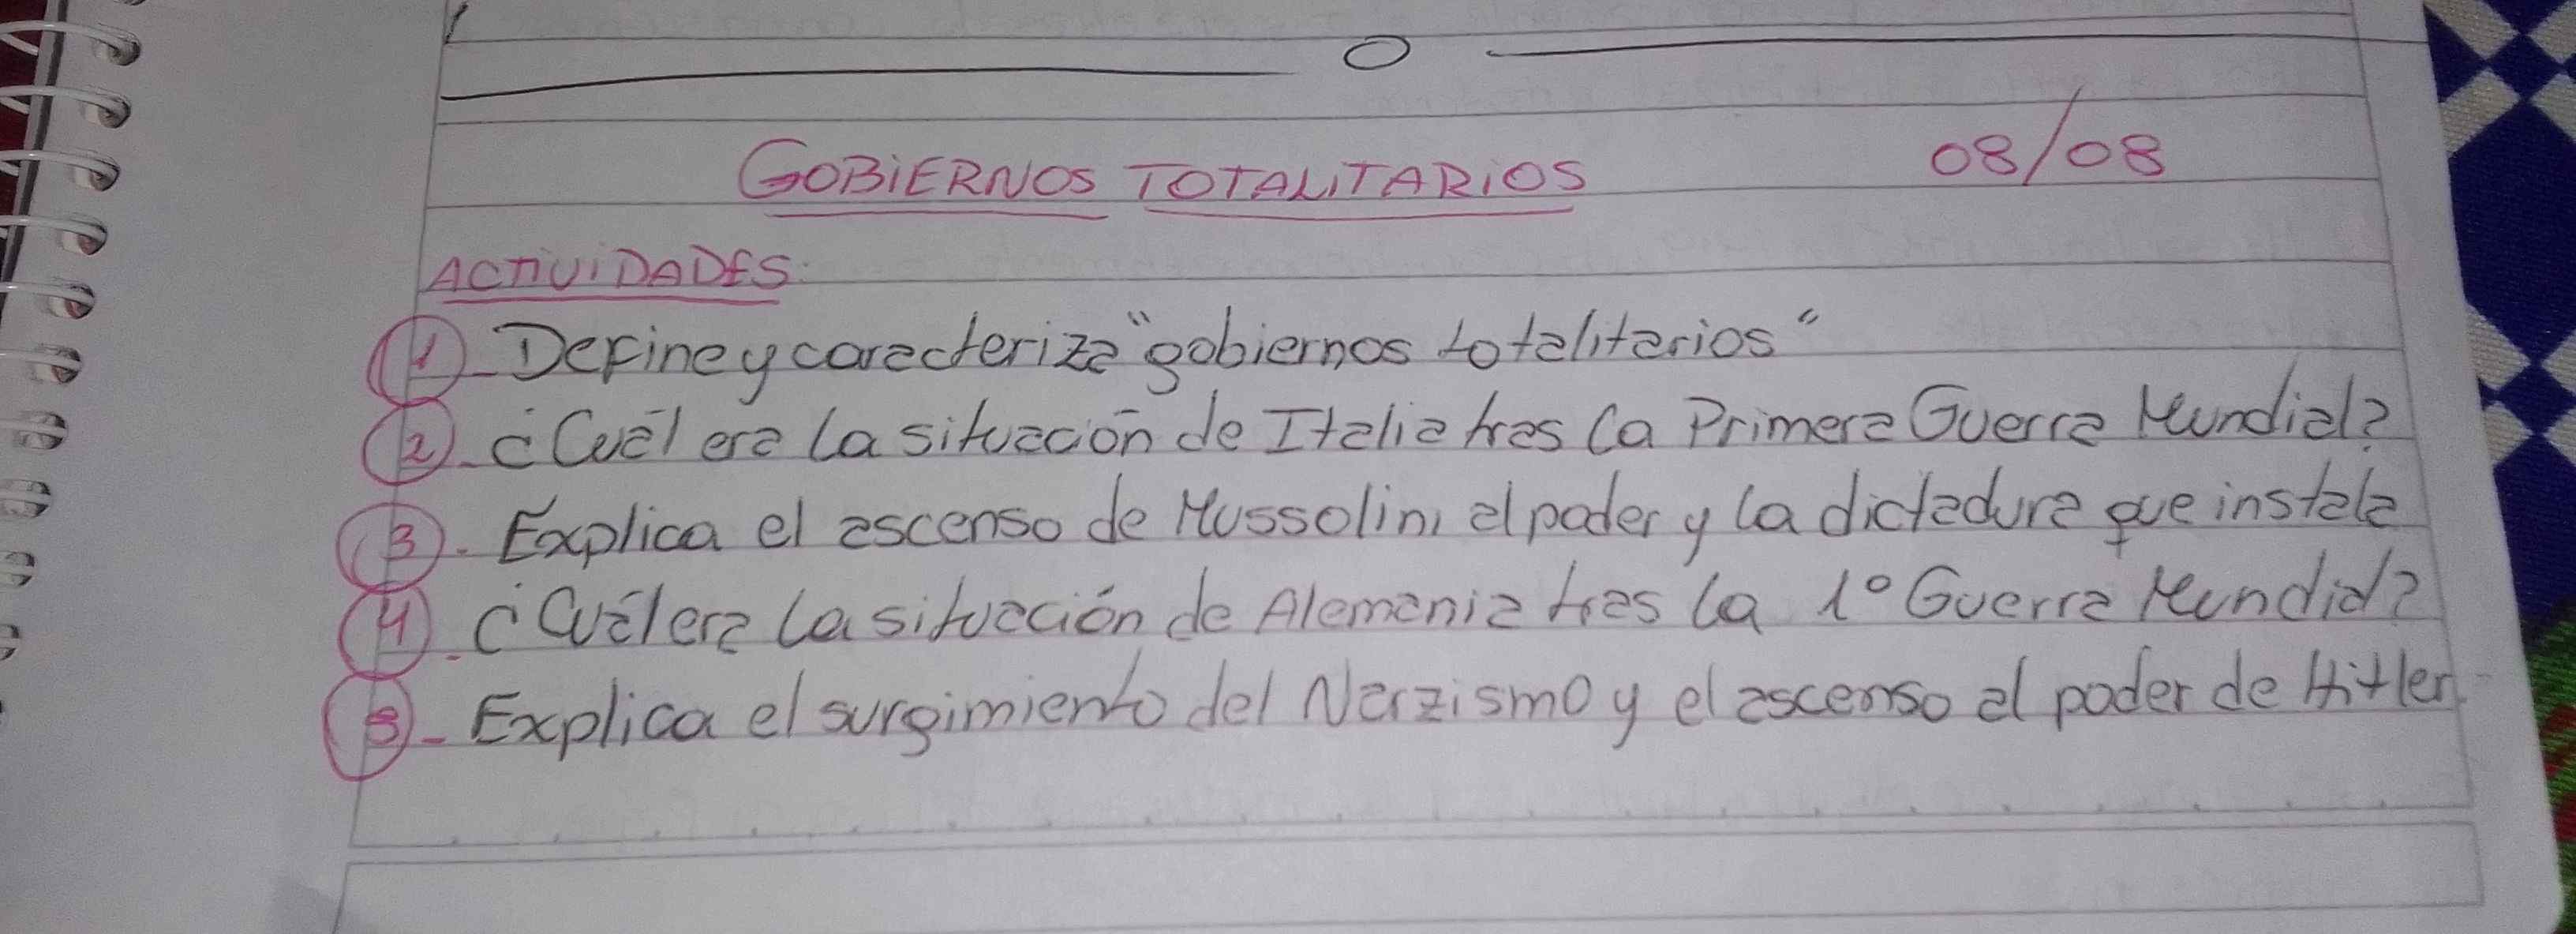 GOBIERNOS TOTALITARIOS 08/08
ACTIVIDADES:
1_ Define y caracteriza "gobiernos totalitarios"
2_ ¿Cuál era la situación de Italia tras la Primera Guerra Mundial?
3. Explica el ascenso de Mussolini al poder y la dictadura que instala
4. ¿Cuál era la situación de Alemania tras la 1° Guerra Mundial?
5_ Explica el surgimiento del Narzismo y el ascenso al poder de Hitler.